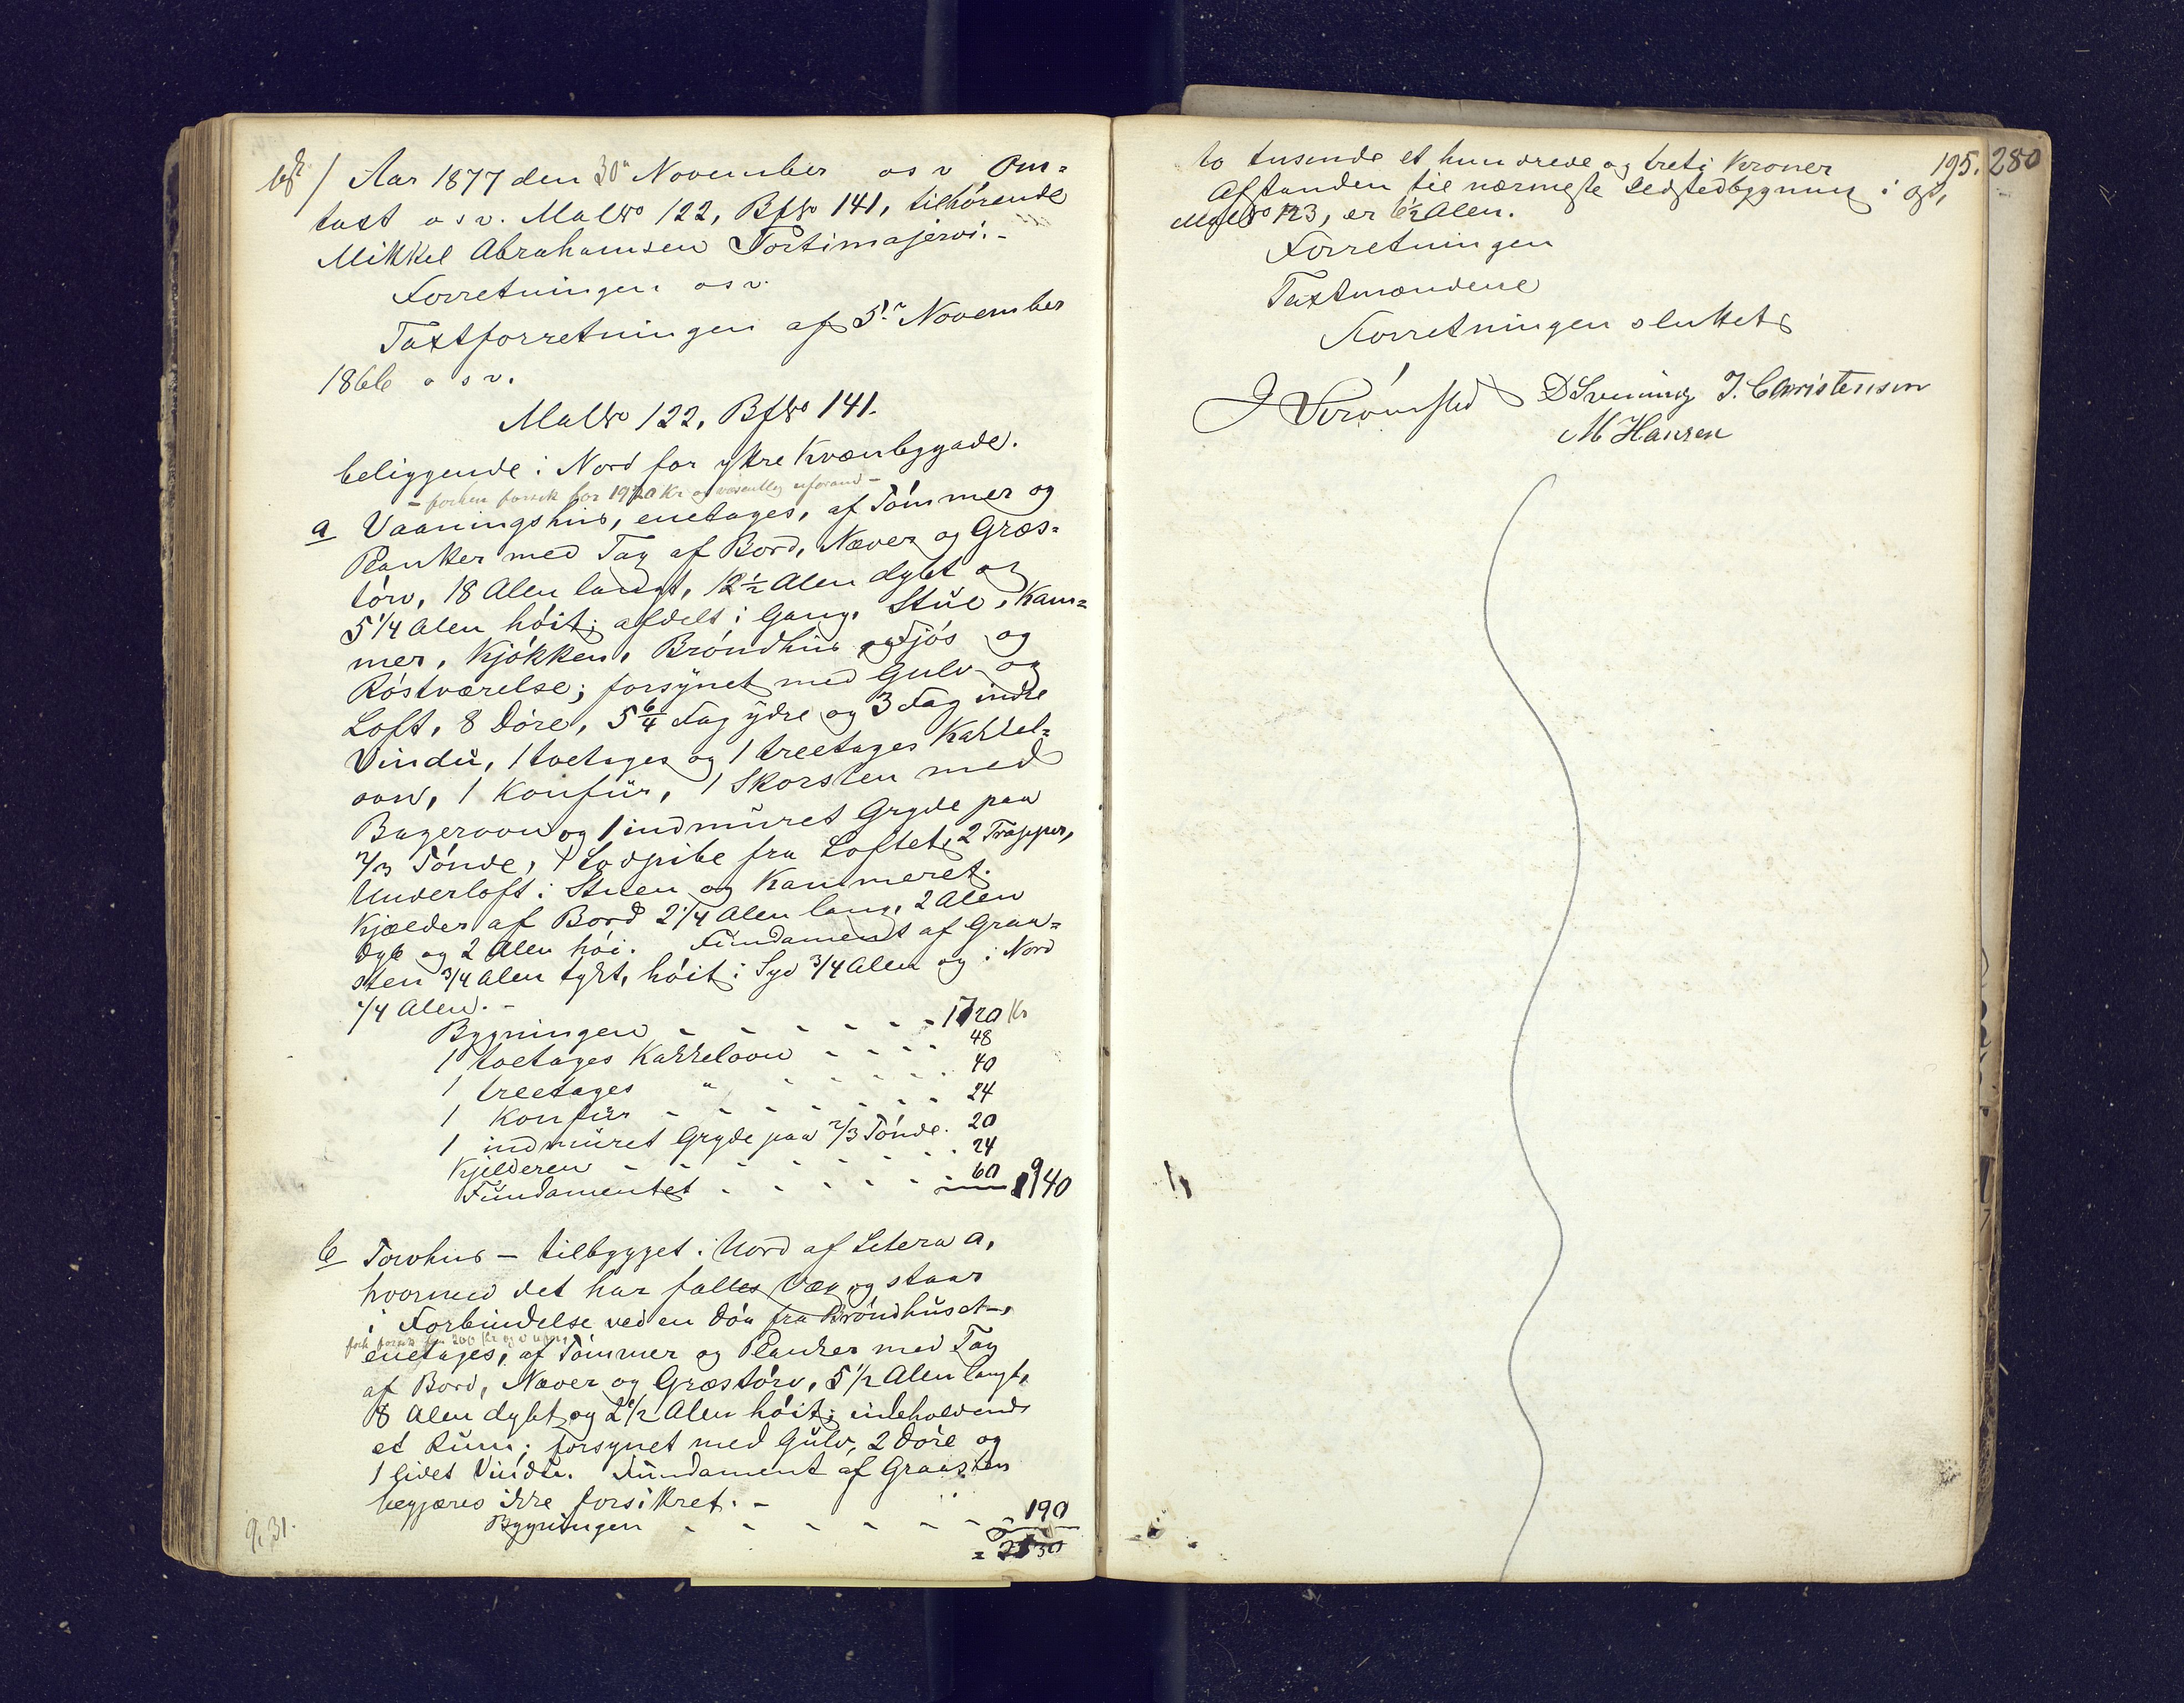 Aar 1877 den 30 November osv Om=
taxt osv. Mal No 122, Bf No 141, tilhørende
Mikkel Abrahamsen Portimojervi. -
Forretningen osv.
Taxtforretningen af 5. November
1866 osv.
Mal No 122, Bf No 141.
beliggende i Nord for ytre Kvænbygade.
- forhen forsik for 1920 Kr og væsentlig uforand -
a Vaaningshus, enetages, af Tömmer og
Planker med Tag af Bord, Næver og Græs=
törv, 18 Alen langt, 12 1/2 Alen dybt og
5 1/4 Alen höit; afdelt i Gang, Stüe, Kam=
mer, Kjökken, Bröndhüs og Fjös og
Röstværelse; forsynet med Gulv og
Loft, 8 Döre, 5 6/4 Fag ydre og 3 Fag indre
Vindü, 1 toetages og 1 treetages Kakkel=
ovn, 1 Konfür, 1 Skorsten med
Bagerovn og 1 indmüret Gryde paa
2/3 Tönde, 1 Lodpibe fra Loftet, 2 Trapper,
Underloft i Stuen og Kammeret.
Kjælder af Bord 2 1/4 Alen lang, 2 Alen
dyb og 2 Alen höi. Fündament af Graa=
sten 3/4 Alen tykt, höit i Syd 3/4 Alen og i Nord
1/4 Alen. -
Bygningen - - - - - - 1720 Kr
1 toetages Kakkelovn - - - - 48
1 treetages " - - - - - 40
1 Konfür - - - - - - - 24
1 indmüret Gryde paa 2/3 Tönde. 20
Kjelderen - - - - - - - 24
Fündamentet - - - - - - 60 1940
b Torvhus - tilbygget i Nord af Litera a,
hvormed det har fælles Væg og staar
i Forbindelse ved en Dör fra Bröndhüset -,
forh forsik for 200 Kr og v uforg
enetages, af Tömmer og Planker med Tag
af Bord, Næver og Græstörv, 5 1/2 Alen langt,
8 Alen dybt og 2 1/2 Alen höit; indeholdende
et Rüm; forsynet med Gülv, 2 Döre og
1 lidet Vindü. Fündament af Graasten
begjæres ikke forsikret. -
Bygningen - - - - - - - 190
= 2130
9,31.
195. 280
to tusende et hundrede og treti Kroner
Afstanden til nærmeste Ildstedbygning i
Mal No 123, er 6 1/2 Alen.
Forretningen
Taxtmændene
Forretningen sluttet
J Strömsted D Svening J. Christensen
M Hansen